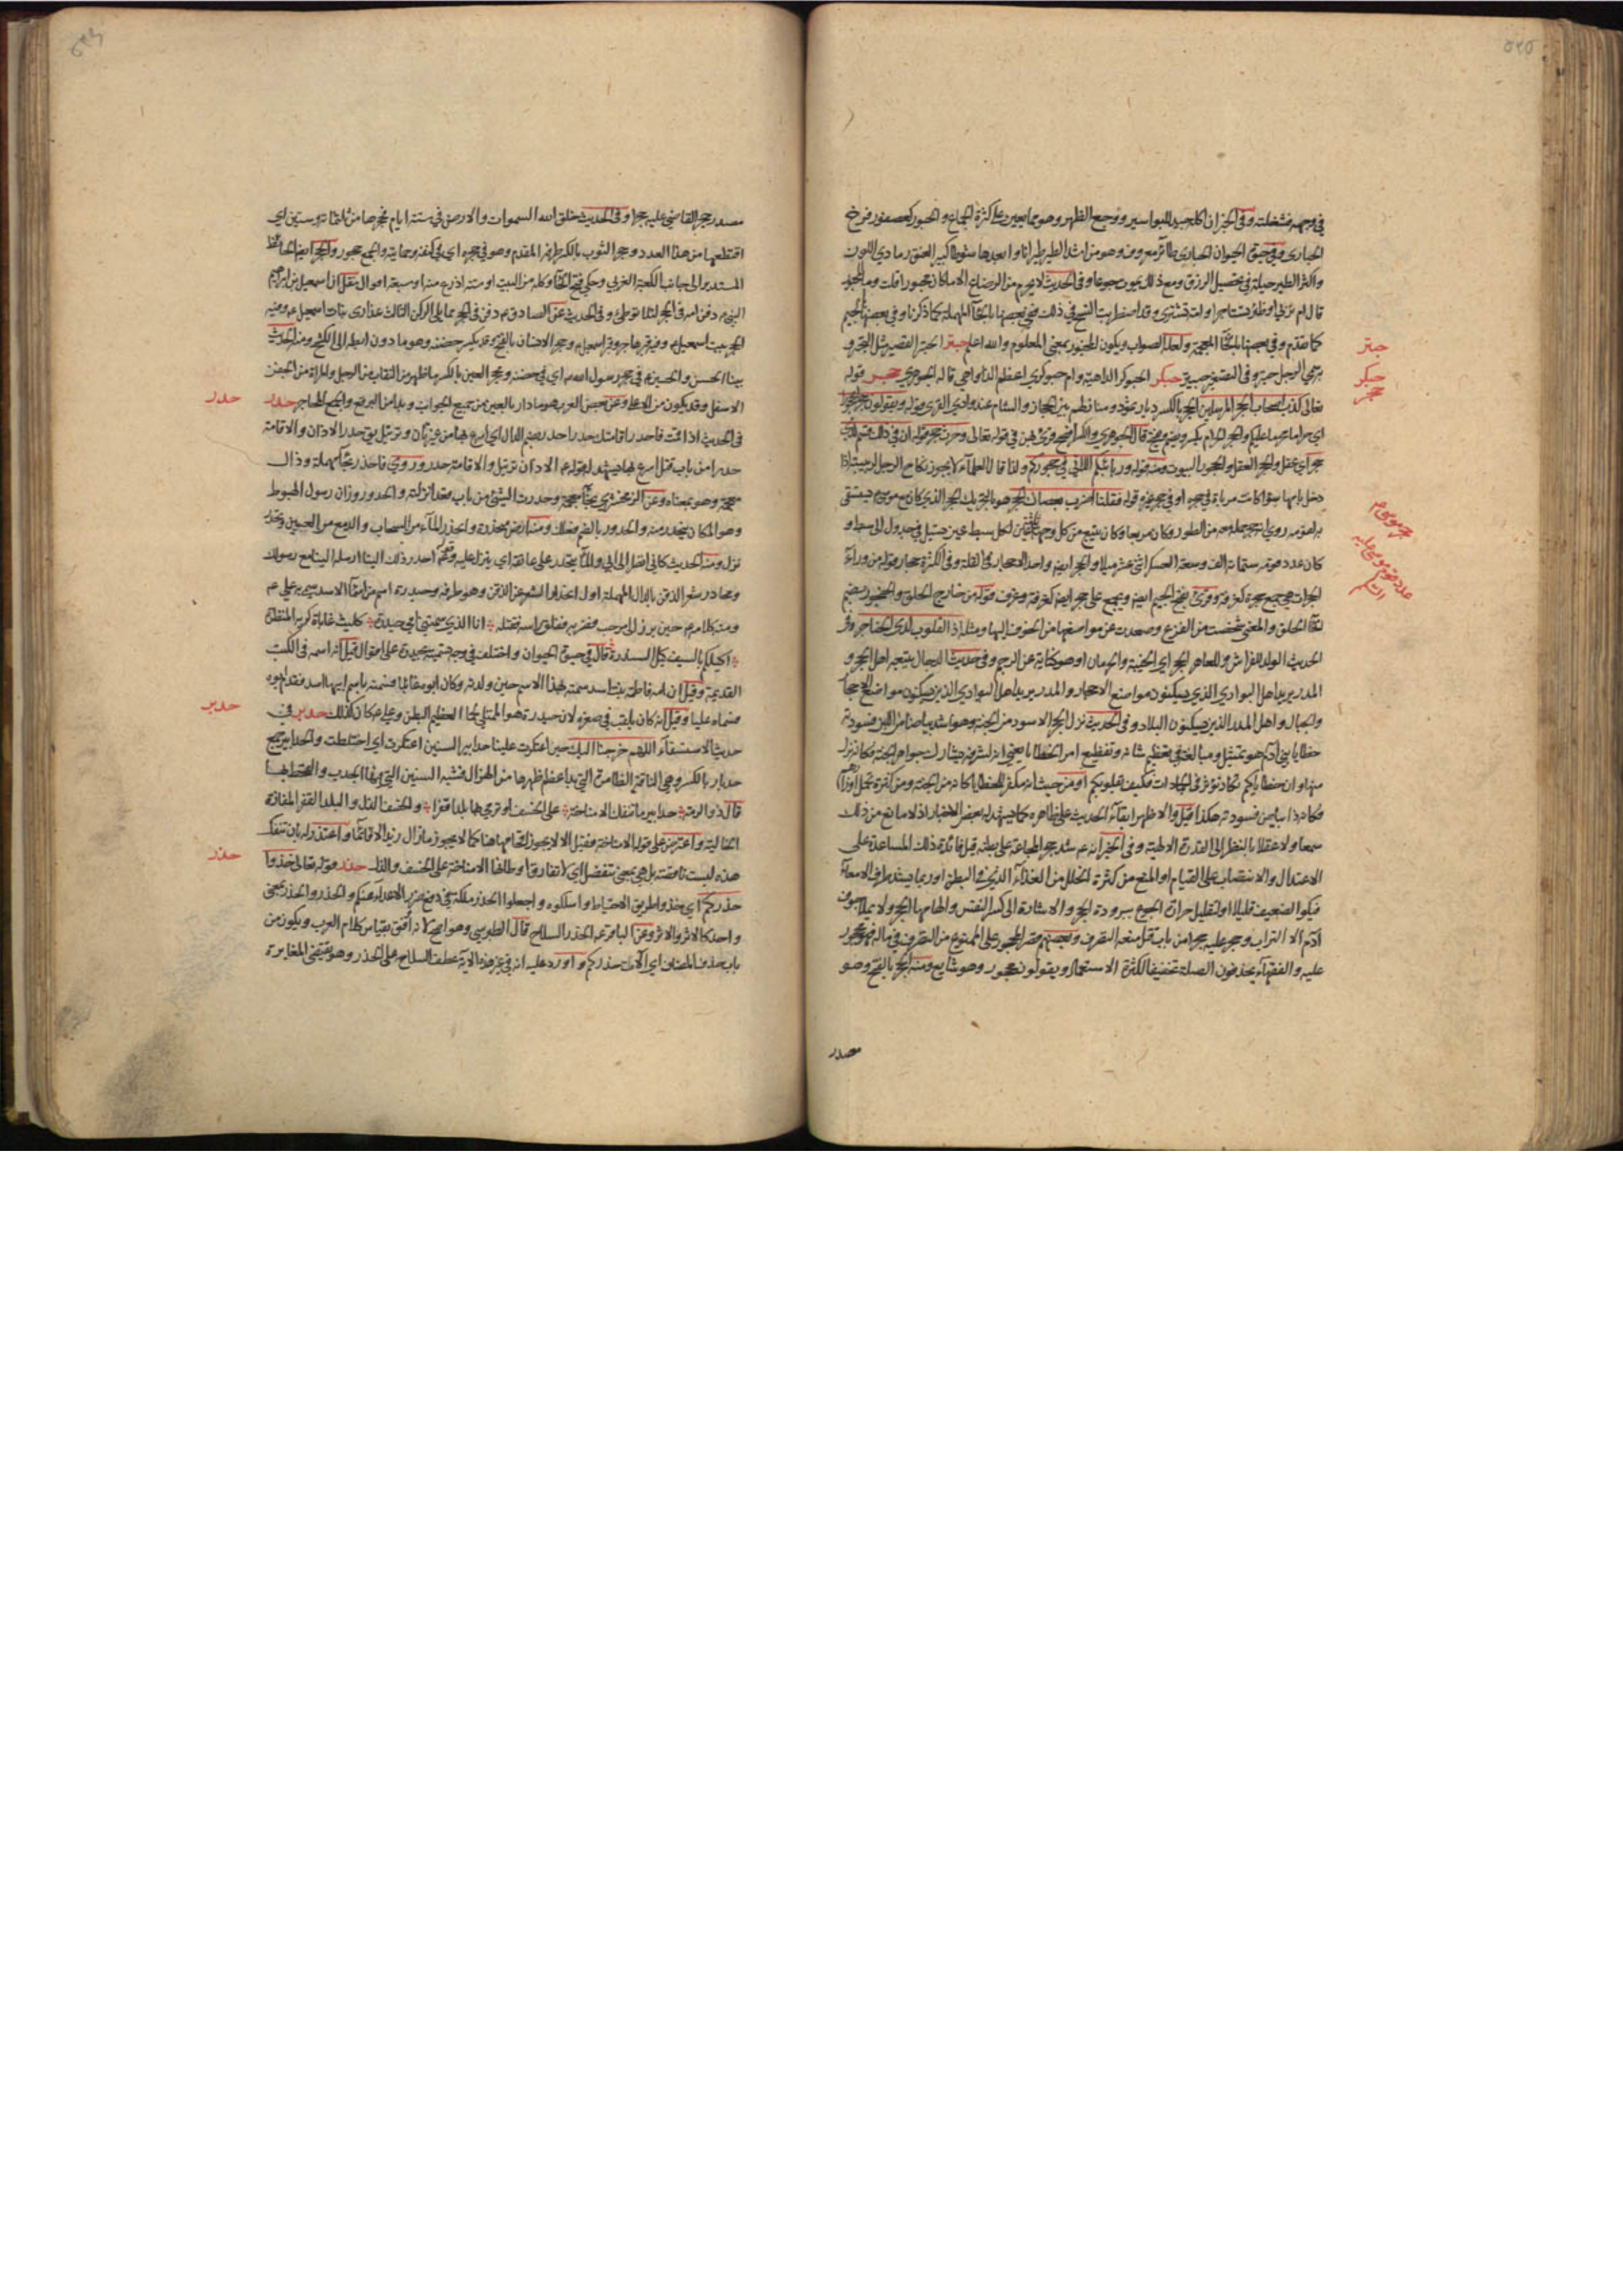 في وجهه فشغلته وفي الخبر ان اكله جيد للبواسير ووجع الظهر وهو مما يعين على كثرة الجماع والحبور كعصفور فرخ
الحبارى وفي حيوة الحيوان الحبارى طائر معروف وهو من اشد الطير طيرانا وابعدها شوطا كبير العنق رمادي اللون
واكثر الطير حيلة في تحصيل الرزق ومع ذلك يموت جوعا وفي الحديث لا يحرم من الرضاع الا ما كان مجبورا قلت وما المجبور
قال ام مربية او ظئر تستاجر او امة تشترى وقد اضطربت النسخ في ذلك ففي بعضها بالحاء المهملة كما ذكرنا وفي بعضها بالجيم
كما تقدم وفي بعضها بالخاء المعجمة ولعله الصواب ويكون المخبور بمعنى المعلوم والله اعلم حبتر الحبتر القصير مثل البحتر و
سمي الرجل حبتر وفي التصغير حبيتر حبكر الحبوكر الداهية وام حبوكرى اعظم الدواهي قاله الجوهري حجر قوله
تعالى كذب اصحاب الحجر المرسلين الحجر بالكسر ديار ثمود ومنازلهم بين الحجاز والشام عند وادي القرى قوله ويقولون حجرا محجورا
اي حراما محرما عليكم والحجر الحرام يكسر ويضم ويفتح قال الجوهري والكسر افصح وقرئ بهن في قوله تعالى وحرث حجر قوله ان في ذلك قسم لذي
حجر اي عقل والحجر العقل والحجور البيوت ومنه قوله وربائبكم اللاتي في حجوركم ولذا قال العلماء لا يجوز نكاح الرجل لربيبته اذا
دخل بامها سواء كانت مرباة في حجره او في حجر غيره قوله فقلنا اضرب بعصاك الحجر هو بالتحريك الحجر الذي كان موسى ع يستسقى
به لقومه روي انه حجر حمله معه من الطور وكان مربعا وكان ينبع من كل وجه ثلاث اعين لكل سبط عين تسيل في جدول الى سبط و
كان عدد قومه ستمائة الف وسعة العسكر اثنى عشر ميلا والحجر ايضا واحد الاحجار في القلة وفي الكثرة حجار قوله من وراء
الحجرات هي جمع حجرة كغرفة وقرئ بفتح الجيم ايضا ويجمع على حجر ايضا كغرفة وغرف قوله من خارج الحلق والحنجور بضم
الحاء الحلق والمعنى شخصت من الفزع وصعدت عن مواضعها من الخوف اليها ومثله اذ القلوب لدى الحناجر وفي
الحديث الولد للفراش وللعاهر الحجر اي الخيبة والحرمان او هو كناية عن الرجم وفي حديث الدجال يتبعه اهل الحجر و
المدر يريد اهل البوادي الذين يسكنون مواضع الاحجار والمدر يريد اهل البوادي الذين يسكنون مواضع الاحجار
والجبال واهل المدر الذين يسكنون البلاد وفي الحديث نزل الحجر الاسود من الجنة وهو اشد بياضا من اللبن فسودته
خطايا بني آدم هو تمثيل ومبالغة في تعظيم شانه وتفظيع امر الخطايا يعني انه لشرفه يشارك جواهر الجنة فكانه نزل
منها وان خطاياكم تكاد تؤثر في الجمادات فكيف بقلوبكم او من حيث انه مكفر للخطايا كانه من الجنة ومن كثرة تحمل اوزارهم
فكانه ذا بياض فسودته هكذا قيل والاظهر ابقاء الحديث على ظاهره كما يشهد له بعض الاخبار اذ لا مانع من ذلك
سمعا ولا عقلا بالنظر الى القدرة الالهية وفي الخبر انه ع شد حجر المجاعة على بطنه قيل فائدة ذلك المساعدة على
الاعتدال والانتصاب على القيام او المنع من كثرة التحلل من الغذاء الذي في البطن او ربما يشد طرف الامعاء
فيكون الضعيف قليلا او لتقليل حرارة الجوع ببرودة الحجر والاشارة الى كسر النفس والهامها الحجر ولا يملا جوف ابن
آدم الا التراب وحجر عليه حجرا من باب قتل منعه التصرف وبعضهم قصر المحجور على الممنوع من التصرف في ماله فهو محجور
عليه والفقهاء يحذفون الصلة تخفيفا لكثرة الاستعمال ويقولون محجور وهو شايع ومنه الحجر بالفتح وهو
مصدر
حبتر
حبكر
حجر
حجر موسى ع
عدد قوم موسى عليه السلم
مصدر حجر القاضي عليه حجرا وفي الحديث خلق الله السموات والارض في ستة ايام فحجرها من ثلثمائة وستين اي
اقتطعها من هذا العدد وحجر الثوب بالكسر طرفه المقدم وهو في حجره اي في كنفه وحمايته والجمع حجور والحجر ايضا الحائط
المستدير الى جانب الكعبة الغربي وحكي فتح الحاء وكله من البيت او ستة اذرع منه او سبعة اقوال نقل ان اسمعيل بن ابراهيم
النبي ع دفن امه في الحجر لئلا توطئ وفي الحديث عن الصادق ع دفن في الحجر مما يلي الركن الثالث عذارى بنات اسمعيل ع وفيه
الحجر بيت اسمعيل ع وفيه قبر هاجر وقبر اسمعيل ع وحجر الانسان بالفتح وقد يكسر حضنه وهو ما دون ابطه الى الكشح ومنه الحديث
بينا الحسن والحسين ع في حجر رسول الله ص اي في حضنه ومحجر العين بالكسر ما ظهر من النقاب من الرجل والمراة من الجفن
الاسفل وقد يكون من الاعلى وعن بعض العرب هو ما دار بالعين من جميع الجوانب وبدا من البرقع والجمع المحاجر حدر
في الحديث اذا اقمت فاحدر اقامتك حدرا احدر بضم الدال اي اسرع بها من غير تان وترتيل يق حدر الاذان والاقامة
حدرا من باب قتل اسرع بها يشهد له قوله ع الاذان ترتيل والاقامة حدر وروي فاحذر بحاء مهملة وذال
معجمة وهو بمعناه وعن الزمخشري بخاء معجمة وحدرت الشيء من باب قعد انزلته والحدور وزان رسول الهبوط
وهو المكان ينحدر منه والحدور بالضم فعلك ومنه ارض منحدرة وانحدر الماء من السحاب والدمع من العينين وتحدر
نزل ومنه الحديث كاني انظر الى ابي والماء يتحدر على عاتقه اي ينزل عليه وقولهم احدر ذلك الينا ارسله الينا مع رسولك
وحادر شعر الذقن بالدال المهملة اول انحدار الشعر عن الذقن وهو طرفه وحيدرة اسم من اسماء الاسد سمي به علي ع
ومنه كلامه ع حين برز الى مرحب فضربه ففلق راسه فقتله انا الذي سمتني امي حيدرة كليث غابات كريه المنظرة
اكيلكم بالسيف كيل السندرة قال في حيوة الحيوان واختلف في وجه تسميته بحيدرة على اقوال قيل انه اسمه في الكتب
القديمة وقيل ان امه فاطمة بنت اسد سمته بهذا الاسم حين ولدته وكان ابوه غائبا فسمته باسم ابيها اسد فقدم ابوه
فسماه عليا وقيل انه كان يلقب في صغره لان حيدرة هو الممتلي لحما العظيم البطن وعلي ع كان كذلك حدبر في
حديث الاستسقاء اللهم خرجنا اليك حين اعتكرت علينا حدابير السنين اعتكرت اي اختلطت والحدابير جمع
حدبار بالكسر وهي الناقة الضامرة التي بدا عظم ظهرها من الهزال فشبه السنين التي فيها الجدب والقحط بها
قال ذو الرمة حدابير ما تنفك الا مناخة على الخسف او نرمي بها بلدا قفرا والخسف الذل والبلد القفر المفازة
الخالية واعترض على قوله الا مناخة فقيل الا لا يجوز القامها هاهنا كما لا يجوز ما زال زيد الا قائما واعتذر له بان تنفك
هذه ليست ناقصة بل هي بمعنى تنفصل اي لا تفارق اوطانها الا مناخة على الخسف والذل حذر قوله تعالى خذوا
حذركم اي خذوا طريق الاحتياط واسلكوه واجعلوا الحذر ملكة في دفع ضرر الاعداء عنكم والحذر والحذر بمعنى
واحد كالاثر والاثر وعن الباقر ع الحذر السلاح قال الطبرسي وهو اصح لانه اوفق بقياس كلام العرب ويكون من
باب حذف المضاف اي آلات حذركم واورد عليه انه في غير هذه الاية عطف السلاح على الحذر وهو يقتضي المغايرة
حدر
حدبر
حذر